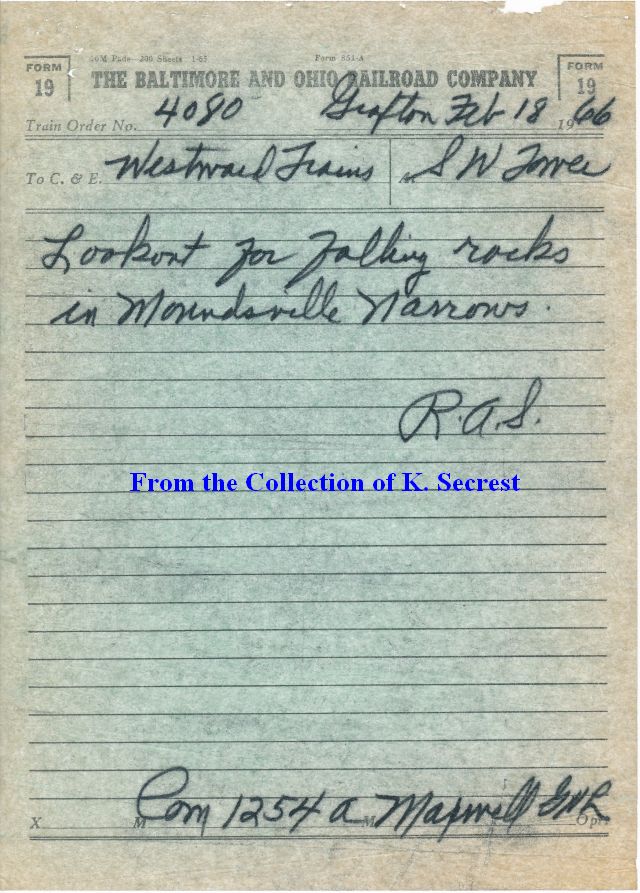 40M Pads—200 Sheets 1-65 Form 851-A
FORM 19
THE BALTIMORE AND OHIO RAILROAD COMPANY
FORM 19
Train Order No. 4080 Grafton Feb 18 1966
To C. & E. Westward Trains At S W Tower
Lookout for falling rocks
in Moundsville Narrows.
R.A.S.
From the Collection of K. Secrest
X M Com 1254 a M Maxwell Opr